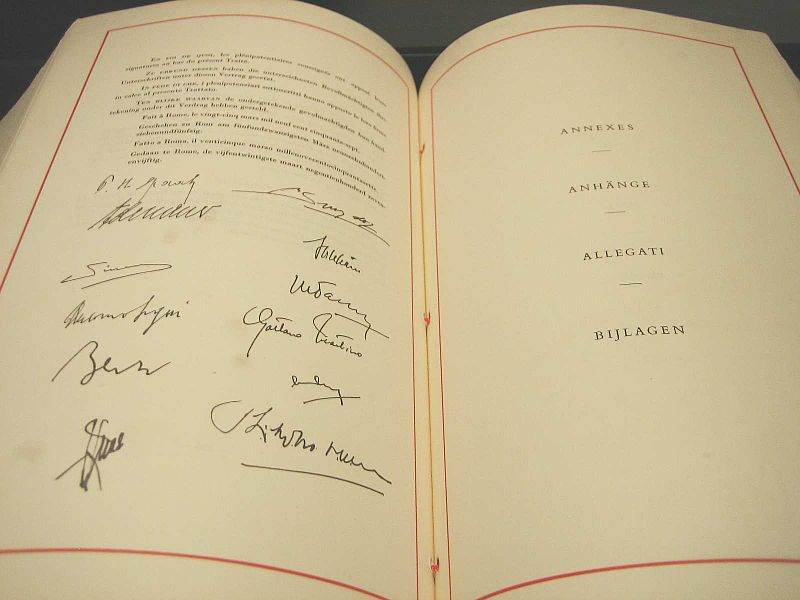 EN FOI DE QUOI, les plénipotentiaires soussignés ont apposé leurs
signatures au bas du présent Traité.
ZU URKUND DESSEN haben die unterzeichneten Bevollmächtigten ihre
Unterschriften unter diesen Vertrag gesetzt.
IN FEDE DI CHE, i plenipotenziari sottoscritti hanno apposto le loro firme
in calce al presente Trattato.
TEN BLIJKE WAARVAN de ondergetekende gevolmachtigden hun hand-
tekening onder dit Verdrag hebben gesteld.
Fait à Rome, le vingt-cinq mars mil neuf cent cinquante-sept.
Geschehen zu Rom am fünfundzwanzigsten März neunzehnhundert-
siebenundfünfzig.
Fatto a Roma, il venticinque marzo millenovecentocinquantasette.
Gedaan te Rome, de vijfentwintigste maart negentienhonderd zeven-
envijftig.
P. H. Spaak
Adenauer
Antonio Segni
Gaetano Martino
Bech
ANNEXES
ANHÄNGE
ALLEGATI
BIJLAGEN